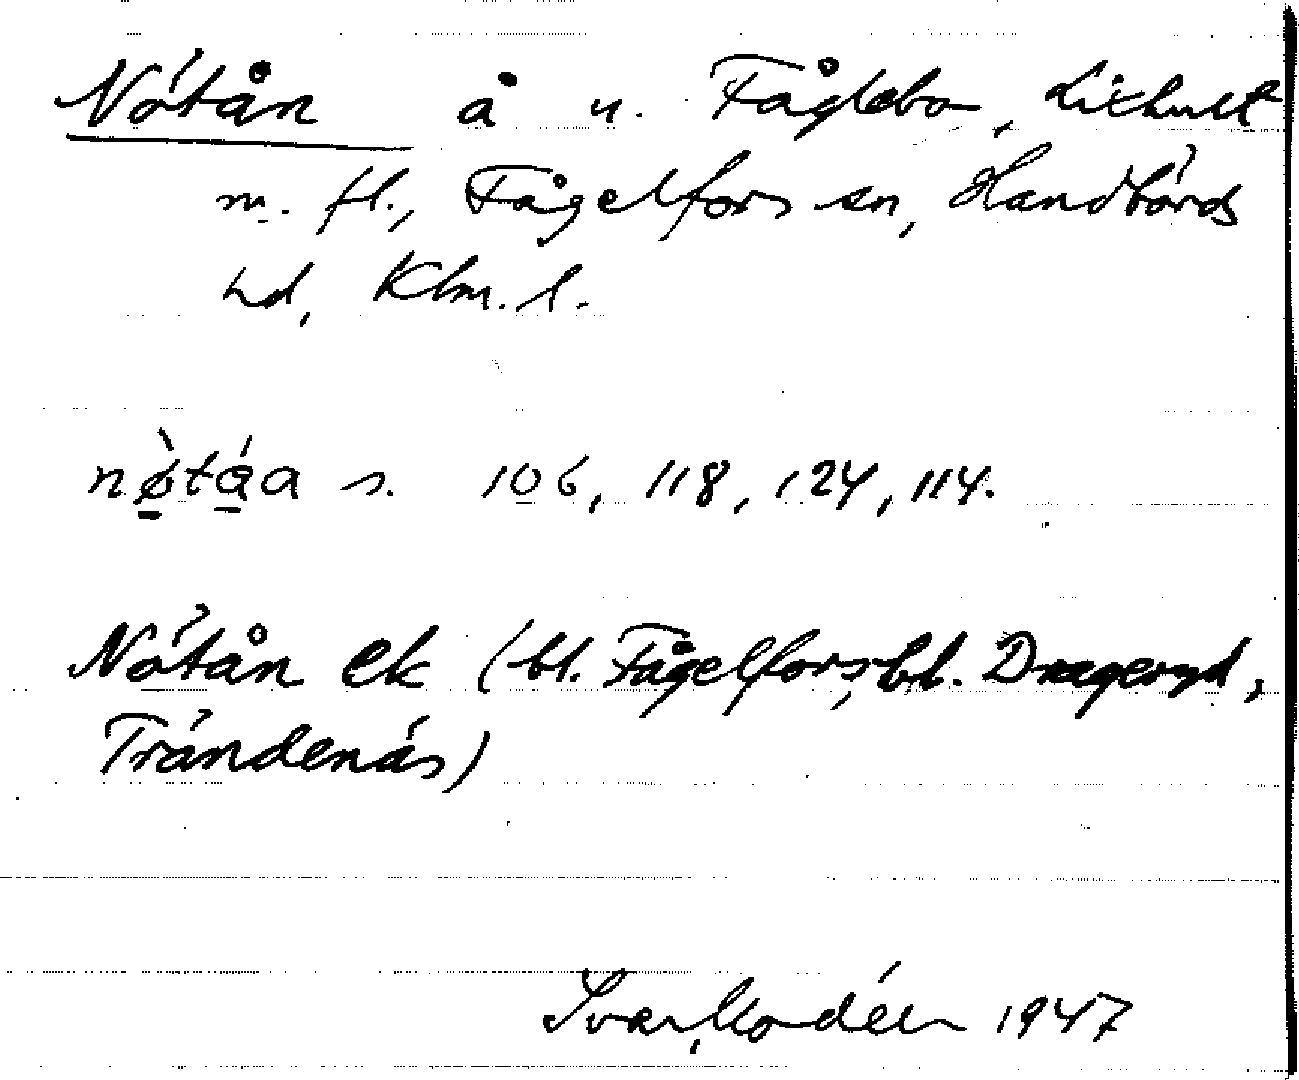 Nötån å u. Fåglebo, Lixhult
m. fl., Fågelfors sn, Handbörds
hd, Klm. l.
nø̀táa s. 106, 118, 124, 114.
Nötån ek (bl. Fågelfors, bl. Drageryd,
Trändenäs)
Ivar Modéer 1947